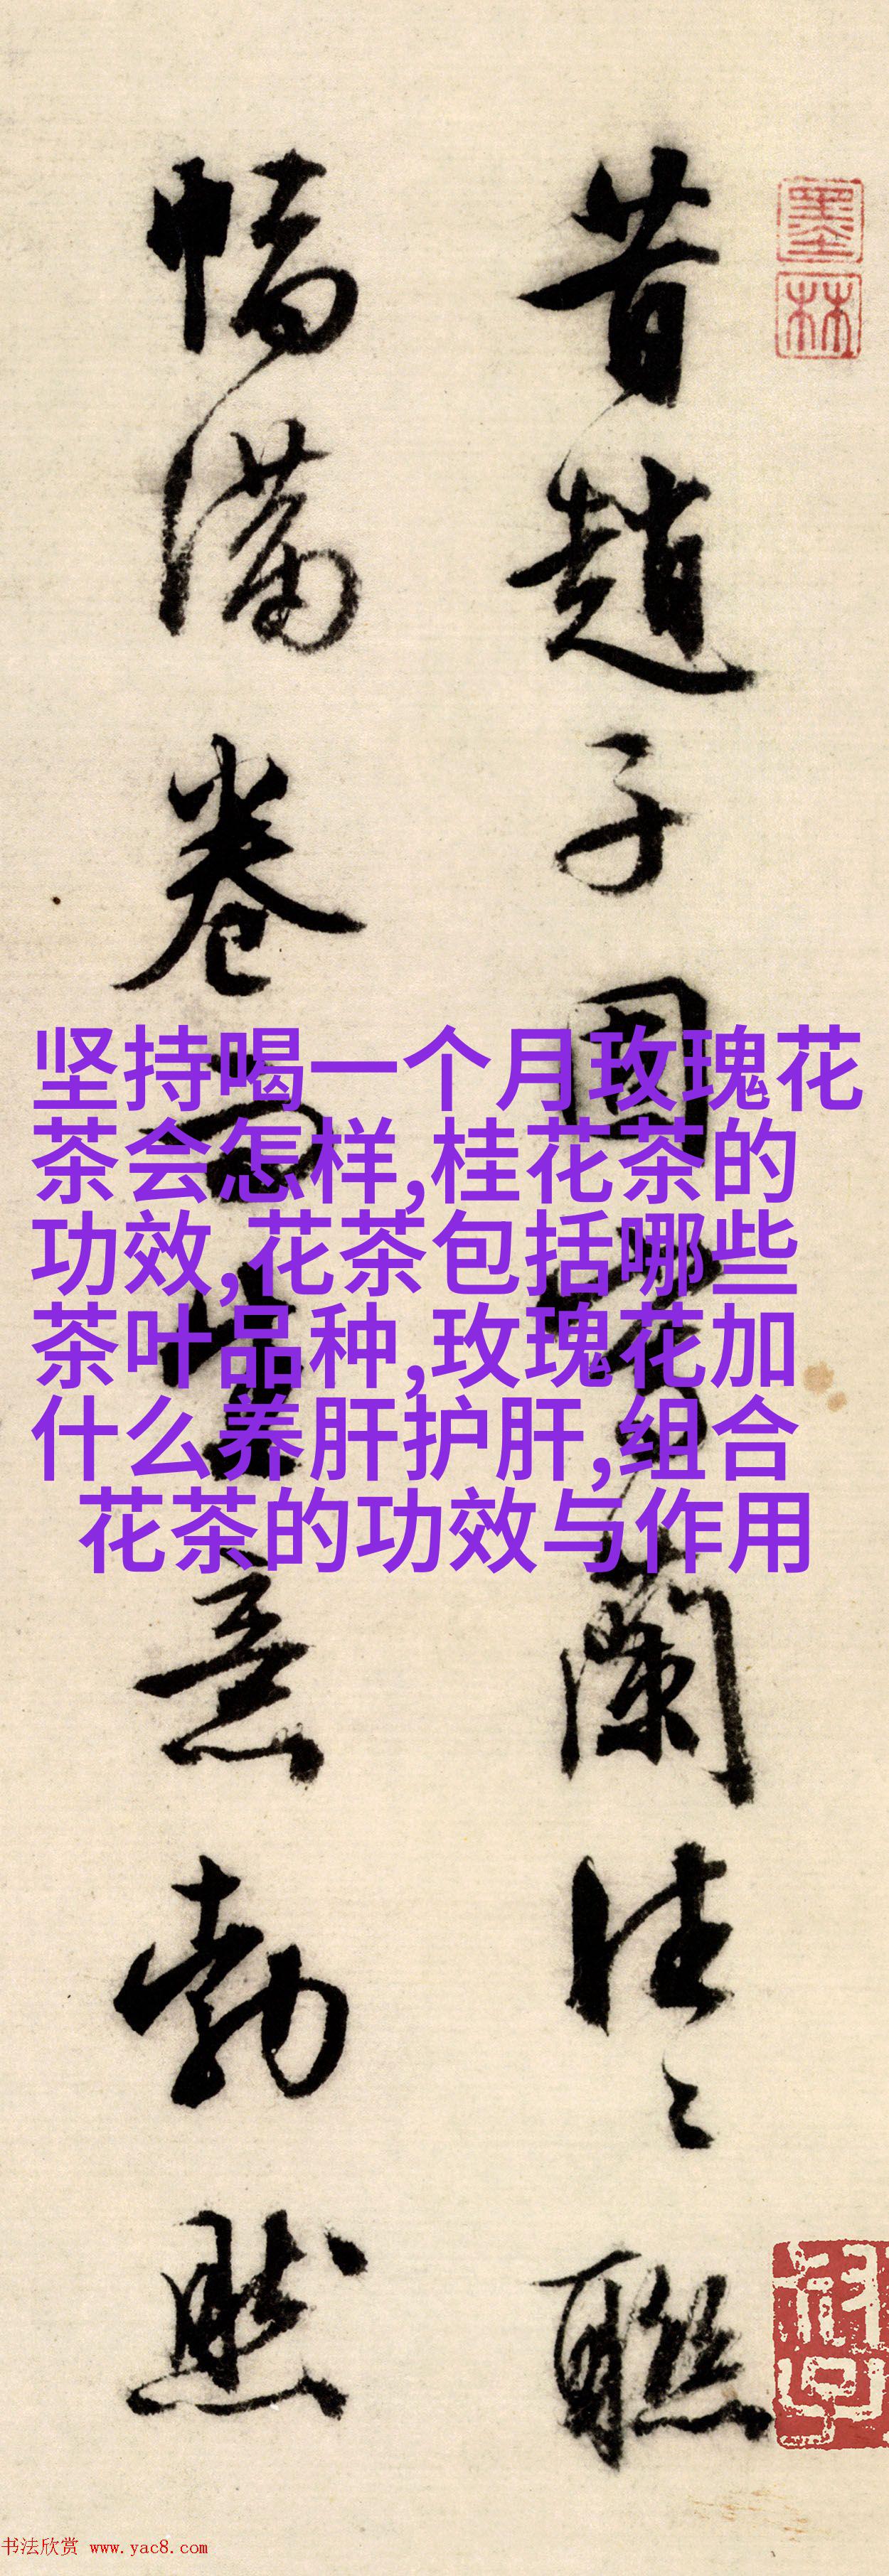 昔趙子固寫蘭往々聯
幅滿卷而生意勃然
墨林
坚持喝一个月玫瑰花
茶会怎样,桂花茶的
功效,花茶包括哪些
茶叶品种,玫瑰花加
什么养肝护肝,组合
花茶的功效与作用
书法欣赏 www.yac8.com